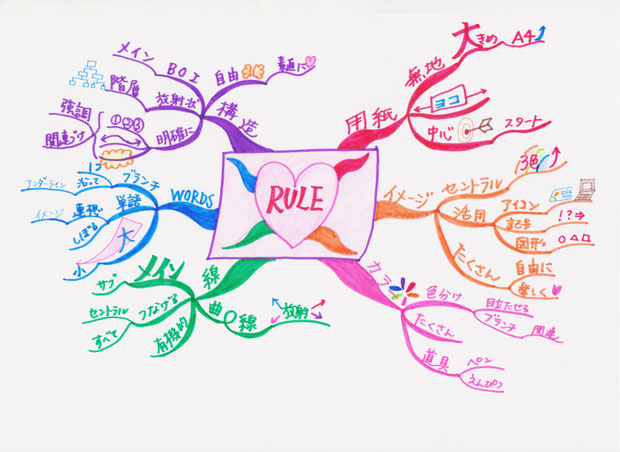 RULE
用紙
無地
大きめ
A4
ヨコ
中心
スタート
イメージ
セントラル
3色
活用
アイコン
記号
!?⇒
図形
○△□
たくさん
自由に
楽しく
カラー
色分け
目立たせる
ブランチ
関連
たくさん
道具
ペン
えんぴつ
線
メイン
サブ
つなげる
セントラル
すべて
有機的
曲線
放射
WORDS
ブランチ
沿って
アンダーライン
単語
連想
イメージ
しぼる
大
小
構造
自由
素直に
メイン
BOI
放射状
階層
明確に
①②③
強調
関連づけ